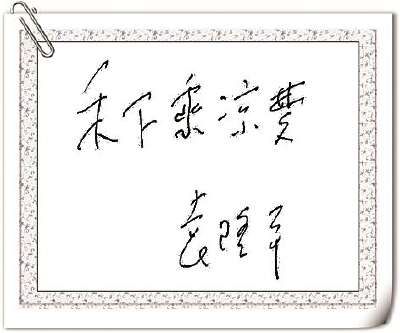 禾下乘凉梦
袁隆平